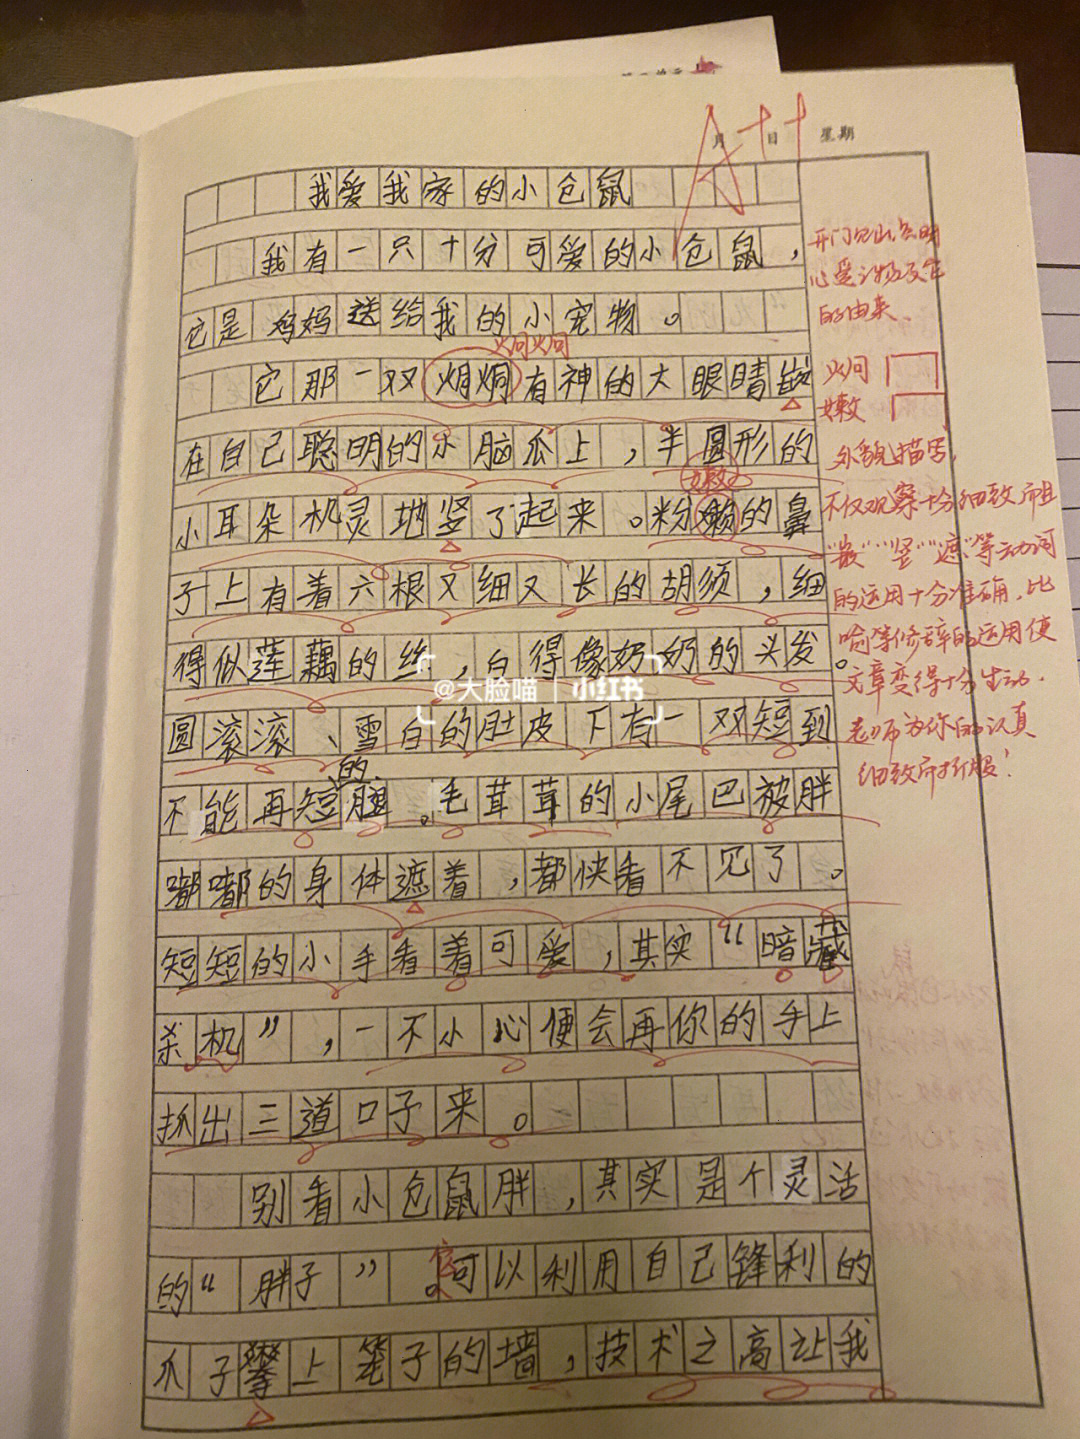 月 日 星期
A++
我爱我家的小仓鼠
我有一只十分可爱的小仓鼠，
它是妈妈送给我的小宠物。
炯炯
它那一双炯炯有神的大眼睛嵌
在自己聪明的小脑瓜上，半圆形的
嫩
小耳朵机灵地竖了起来。粉嫩的鼻
子上有着六根又细又长的胡须，细
得似莲藕的丝，白得像奶奶的头发。
圆滚滚、雪白的肚皮下有一双短到
的
不能再短腿。毛茸茸的小尾巴被胖
嘟嘟的身体遮着，都快看不见了。
短短的小手看着可爱，其实“暗藏
杀机”，一不小心便会再你的手上
抓出三道口子来。
别看小仓鼠胖，其实是个灵活
的“胖子”。它可以利用自己锋利的
爪子攀上笼子的墙，技术之高让我
开门见山，点明
心爱之物及它
的由来。
炯
嫩
外貌描写，
不仅观察十分细致而且
“嵌”“竖”“遮”等动词
的运用十分准确，比
喻等修辞的运用使
文章变得十分生动.
老师为你的认真
细致所折服！
@大脸喵 小红书